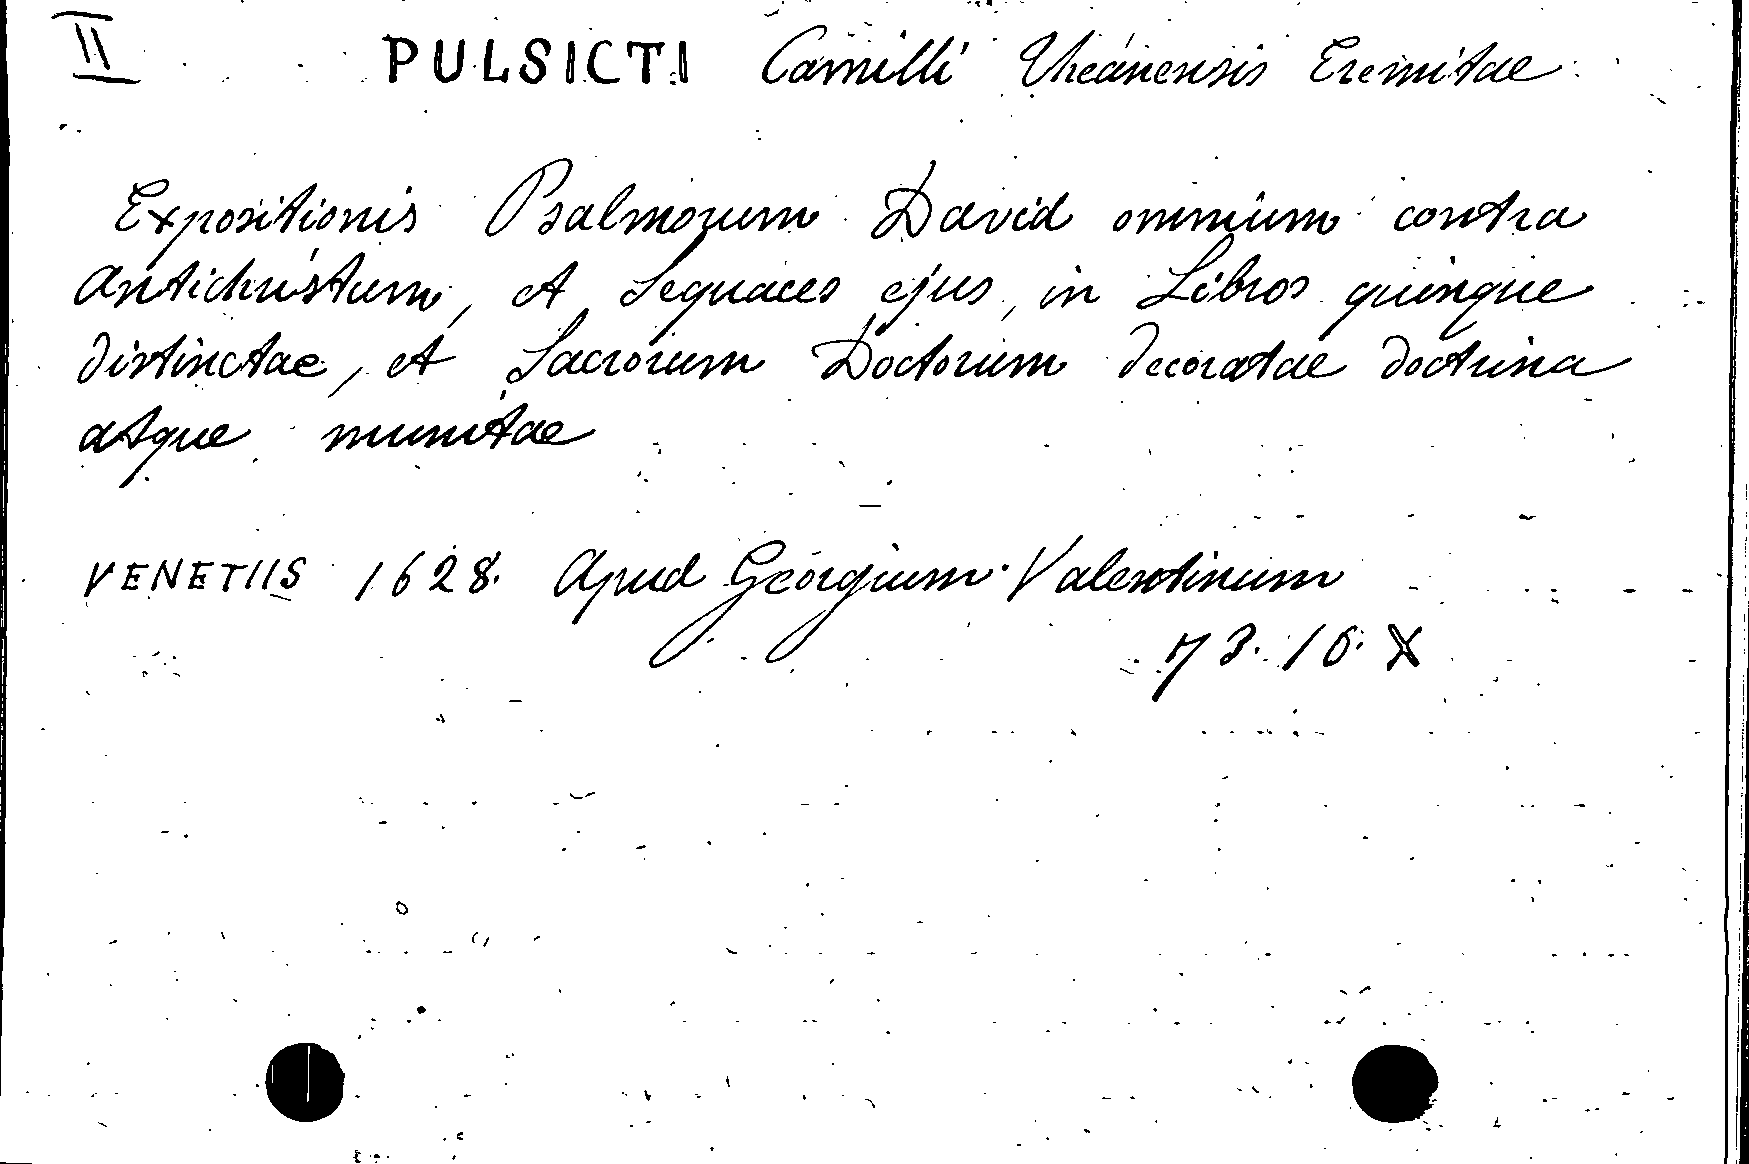 II PULSICTI Camilli Theanensis Eremitae
Expositionis Psalmorum David omnium contra
Antichristum, et Sequaces ejus, in Libros quinque
distinctae, et Sacrorum Doctorum decoratae doctrina
atque munitae
VENETIIS 1628. Apud Georgium Valentinum
73. 16. X